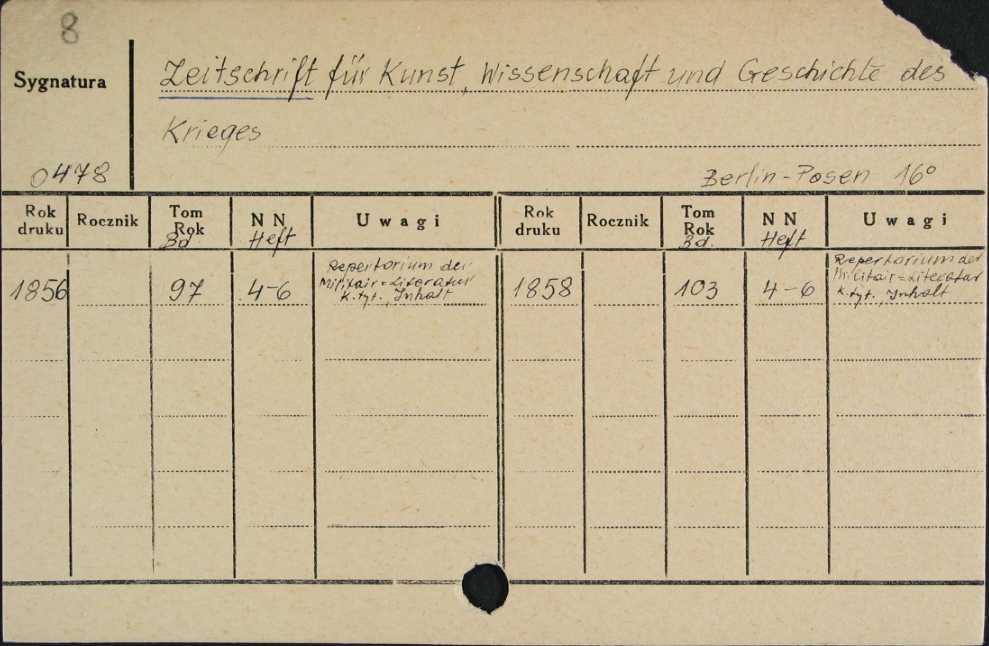 8
Sygnatura
Zeitschrift für Kunst, Wissenschaft und Geschichte des
Krieges
0478
Berlin-Posen 16°
Rok druku Rocznik Tom Rok Bd. N N Heft Uwagi Rok druku Rocznik Tom Rok Bd. N N Heft Uwagi
1856 97 4-6 Repertorium der Militair=Literatur K. tyt., Inhalt 1858 103 4-6 Repertorium der Militair=Literatur K. tyt., Inhalt